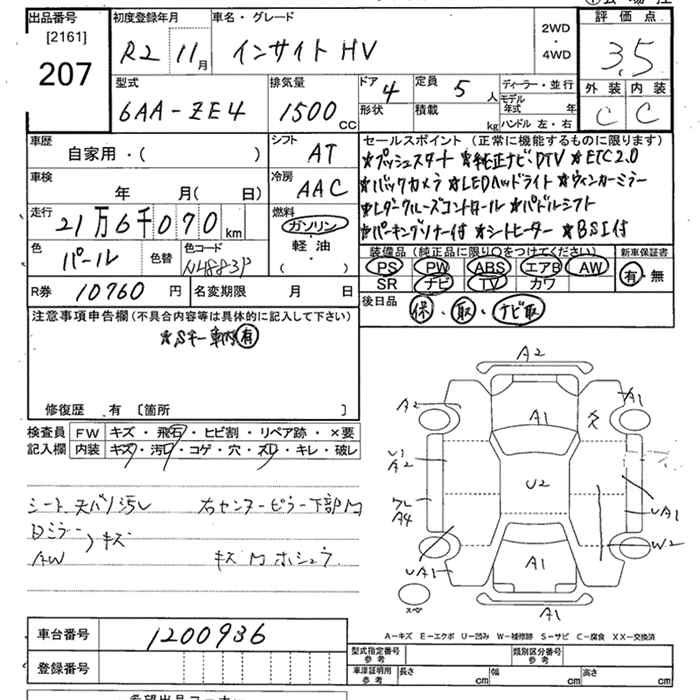 出品番号
[2161]
207
初度登録年月
R2 11月
車名・グレード
インサイト HV
2WD
・
4WD
評価点
3.5
外装 内装
C C
型式
6AA-ZE4
排気量
1500cc
ドア 4
形状
定員 5人
積載 kg
ディーラー・並行
モデル年式 年
ハンドル 左・右
車歴
自家用・( )
シフト
AT
車検
年 月( 日)
冷房
AAC
走行
21万6千070km
燃料
ガソリン
軽油
( )
色
パール
色替
色コード
NH883P
R券 10760円
名変期限 月 日
セールスポイント (正常に機能するものに限ります)
★プッシュスタート ★純正ナビ・DTV ★ETC2.0
★バックカメラ ★LEDヘッドライト ★ウィンカーミラー
★レダークルーズコントロール ★パドルシフト
★パーキングソナー付 ★シートヒーター ★BSI付
装備品(純正品に限り○をつけてください)
PS PW ABS エアB AW
SR ナビ TV カワ
新車保証書
有・無
後日品
保・取・ナビ取
注意事項申告欄(不具合内容等は具体的に記入して下さい)
★Sキー車内有
修復歴 有 〔箇所 〕
検査員記入欄
FW キズ・飛石・ヒビ割・リペア跡・×要
内装 キズ・汚レ・コゲ・穴・スレ・キレ・破レ
シート天バリ汚レ 右センターピラー下部M
Dミラー
AW 〉キズ
キズMホシュウ
A2
A2
A1
A1
U1
A2
U2
クレ
A4
UA1
UA1
A1
W2
スペ
A1
A-キズ E-エクボ U-凹み W-補修跡 S-サビ C-腐食 XX-交換済
車台番号 1200936
登録番号
型式指定番号 参考
類別区分番号 参考
車庫証明用 参考 長さ cm 幅 cm 高さ cm